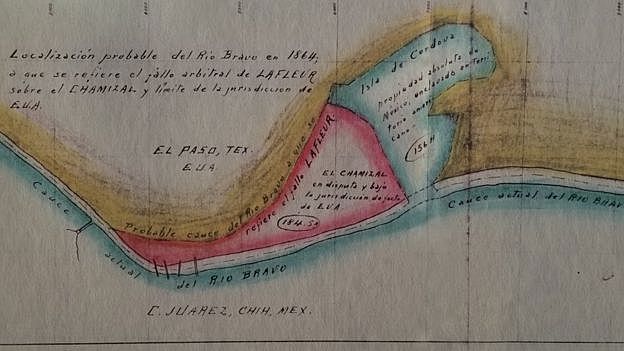 Localización probable del Río Bravo en 1864,
a que se refiere el fallo arbitral de LAFLEUR
sobre el CHAMIZAL y límite de la jurisdicción de
E.U.A.
Isla de Cordova
propiedad absoluta de
Mexico, enclavado en terri
torio ameri
cano.
EL PASO, TEX.
E.U.A.
Probable cauce del Río Bravo a que se
refiere el fallo LAFLEUR
EL CHAMIZAL
en disputa y bajo
la jurisdicción de facto
de EUA
Cauce actual del RIO BRAVO
Cauce actual del RIO BRAV
C. JUAREZ, CHIH, MEX.